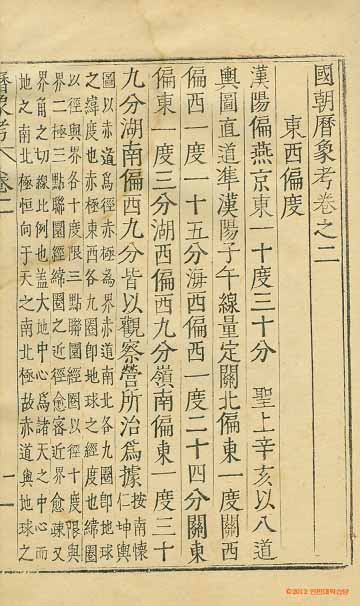 國朝曆象考卷之二
東西偏度
漢陽偏燕京東一十度三十分 聖上辛亥以八道
輿圖直道準漢陽子午線量定關北偏東一度關西
偏西一度一十五分海西偏西一度二十四分關東
偏東一度三分湖西偏西九分嶺南偏東一度三十
九分湖南偏西九分皆以觀察營所治爲據按南懷仁坤輿
圖以赤道爲徑赤極爲界赤道南北各九圈卽地球
之緯度也赤極東西各九圈卽地球之經度也緯圈
以徑與界各十度限三點聯圈經圈以徑十度限與
界二極三點聯圈經緯圈之近徑愈密近界愈疎又
界角之切線比例也盖大地中心爲諸天之中心而
地之南北極恒向于天之南北極故赤道與地球之
一
©2012 인컨대학습당